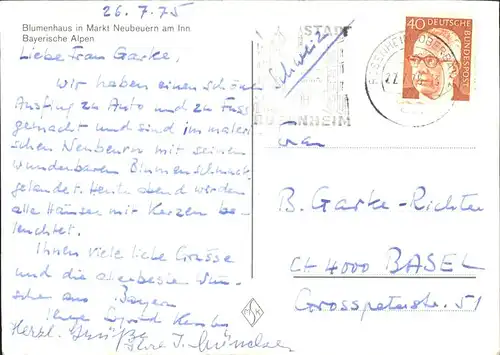 26.7.75
Blumenhaus in Markt Neubeuern am Inn
Bayerische Alpen
Liebe Frau Garke,
Wir haben einen schönen
Ausflug zu Auto und zu Fuss
gemacht und sind im maleri-
schen Neubeuern mit seinen
wunderbaren Blumenschmuck
gelandet. Heute abend werden
alle Häuser mit Kerzen be-
leuchtet.
Ihnen viele liebe Grüsse
und die allerbesten Wün-
sche aus Bayern
Ihre
Herzl. Grüße Ihre I.
STADT
ROSENHEIM
Schweiz
ROSENHEIM
40
DEUTSCHE BUNDESPOST
Frau
B. Garke-Richter
CH 4000 BASEL
Grosspeterstr. 51